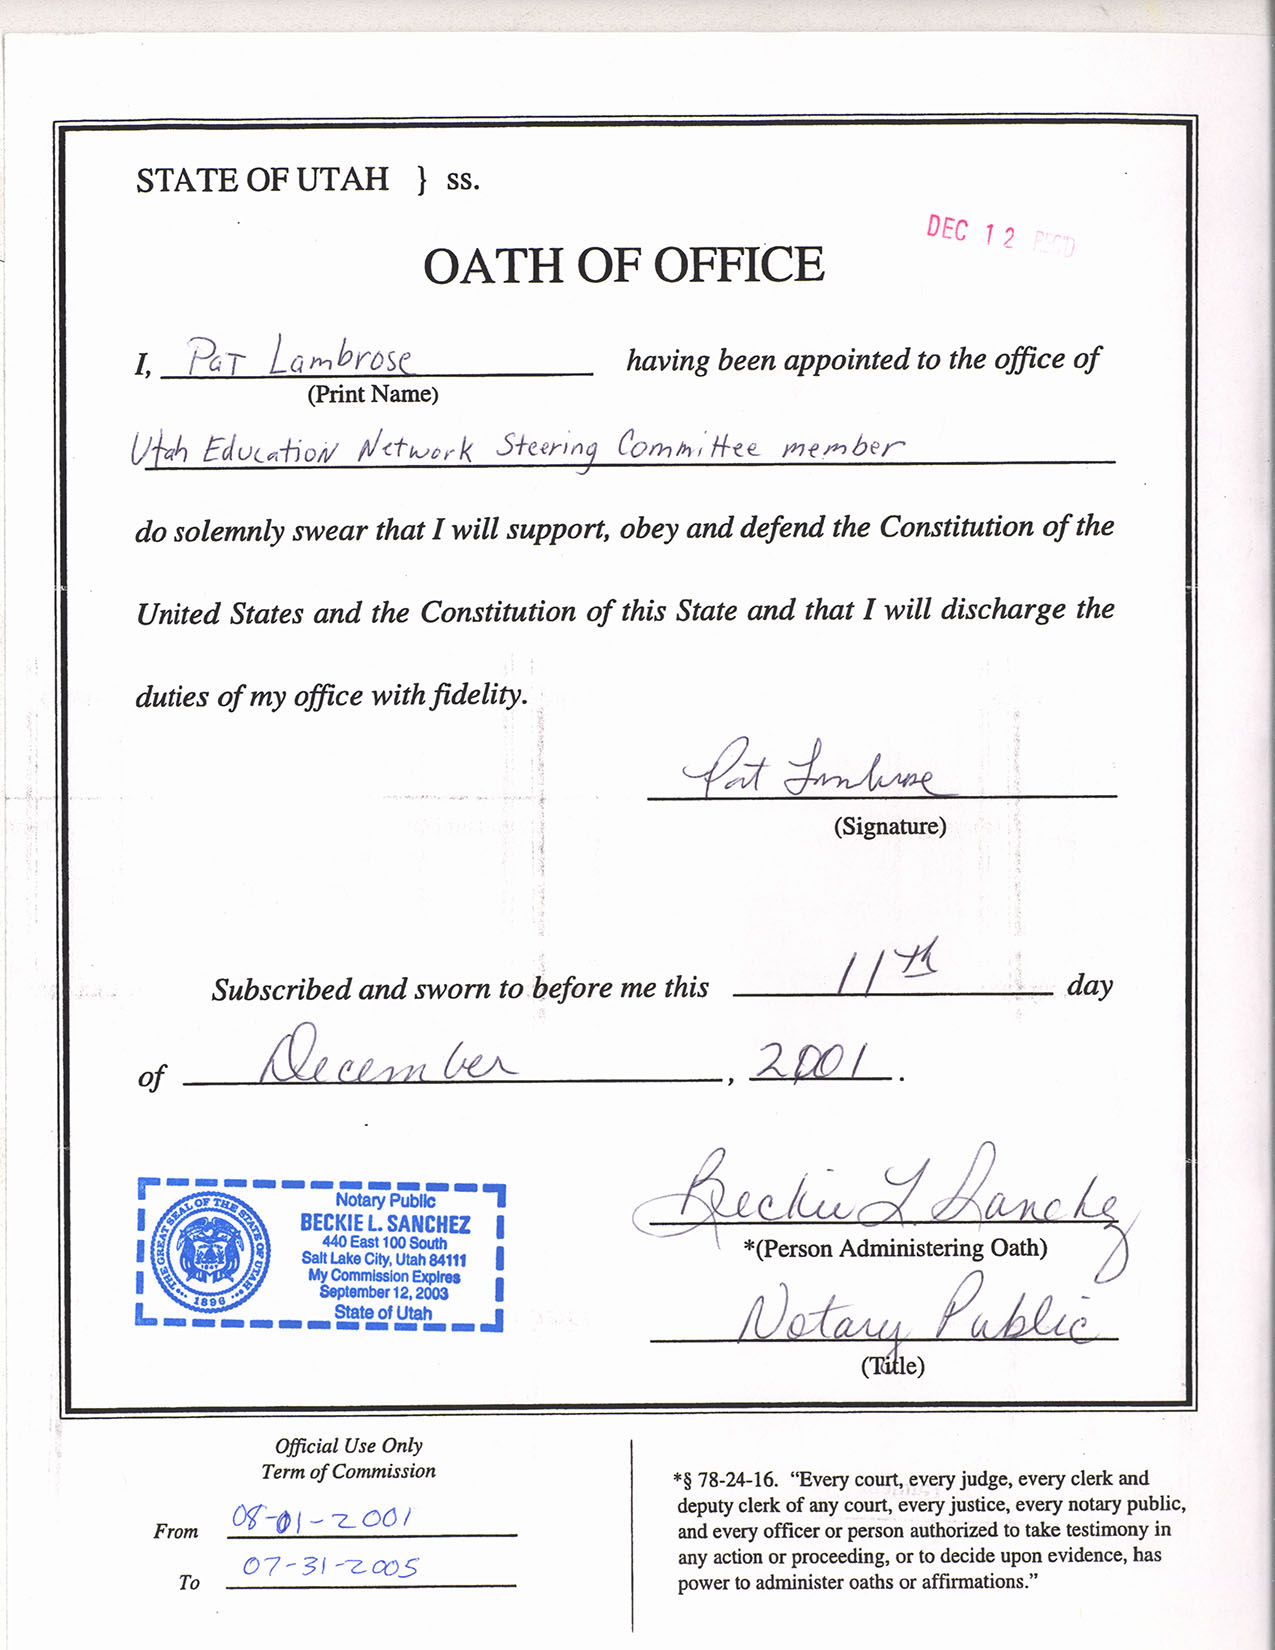 STATE OF UTAH } ss.
DEC 12 REC'D
OATH OF OFFICE
I, Pat Lambrose having been appointed to the office of
(Print Name)
Utah Education Network Steering Committee member
do solemnly swear that I will support, obey and defend the Constitution of the
United States and the Constitution of this State and that I will discharge the
duties of my office with fidelity.
Pat Lambrose
(Signature)
Subscribed and sworn to before me this 11th day
of December, 2001.
THE GREAT SEAL OF THE STATE OF UTAH
1896
Notary Public
BECKIE L. SANCHEZ
440 East 100 South
Salt Lake City, Utah 84111
My Commission Expires
September 12, 2003
State of Utah
Beckie L. Sanchez
*(Person Administering Oath)
Notary Public
(Title)
Official Use Only
Term of Commission
From 08-01-2001
To 07-31-2005
*§ 78-24-16. “Every court, every judge, every clerk and
deputy clerk of any court, every justice, every notary public,
and every officer or person authorized to take testimony in
any action or proceeding, or to decide upon evidence, has
power to administer oaths or affirmations.”